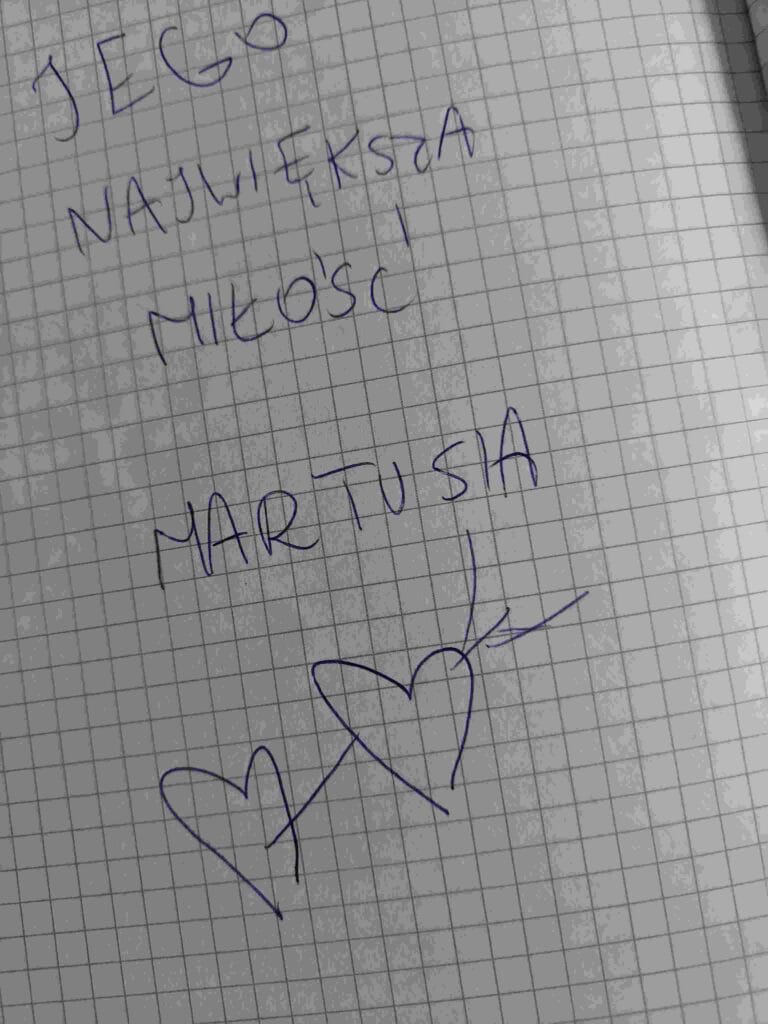 JEGO
NAJWIĘKSZA
MIŁOŚĆ
MARTUSIA